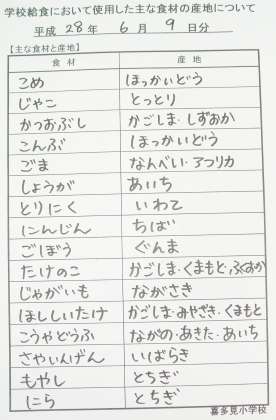 学校給食において使用した主な食材の産地について
平成 28 年 6 月 9 日分
【主な食材と産地】
食 材 産 地
こめ ほっかいどう
じゃこ とっとり
かつおぶし かごしま・しずおか
こんぶ ほっかいどう
ごま なんべい・アフリカ
しょうが あいち
とりにく いわて
にんじん ちば
ごぼう ぐんま
たけのこ かごしま・くまもと・ふくおか
じゃがいも ながさき
ほししいたけ かごしま・みやざき・くまもと
こうやどうふ ながの・あきた・あいち
さやいんげん いばらき
もやし とちぎ
にら とちぎ
喜多見小学校